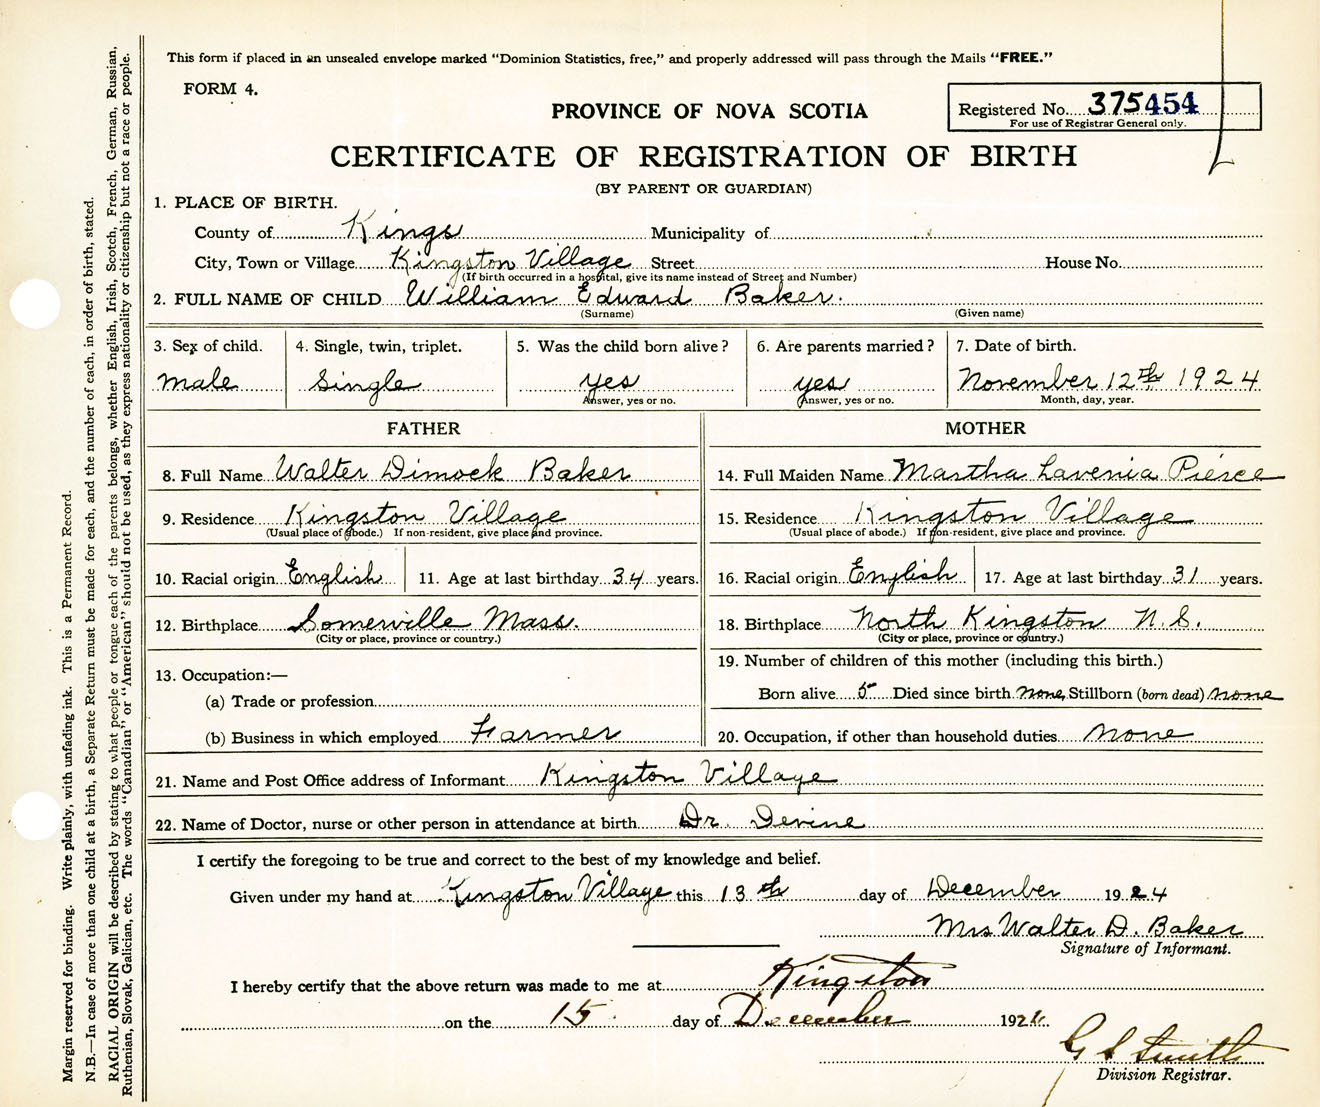 This form if placed in an unsealed envelope marked "Dominion Statistics, free," and properly addressed will pass through the Mails "FREE."
FORM 4.
PROVINCE OF NOVA SCOTIA
Registered No. 375454
For use of Registrar General only.
CERTIFICATE OF REGISTRATION OF BIRTH
(BY PARENT OR GUARDIAN)
1. PLACE OF BIRTH.
County of Kings Municipality of
City, Town or Village Kingston Village Street House No.
(If birth occurred in a hospital, give its name instead of Street and Number)
2. FULL NAME OF CHILD William Edward Baker.
(Surname) (Given name)
3. Sex of child. 4. Single, twin, triplet. 5. Was the child born alive? 6. Are parents married? 7. Date of birth.
male Single yes yes November 12th 1924
Answer, yes or no. Answer, yes or no. Month, day, year.
FATHER MOTHER
8. Full Name Walter Dimock Baker 14. Full Maiden Name Martha Lavenia Pierce
9. Residence Kingston Village 15. Residence Kingston Village
(Usual place of abode.) If non-resident, give place and province. (Usual place of abode.) If non-resident, give place and province.
10. Racial origin English 11. Age at last birthday 34 years. 16. Racial origin English 17. Age at last birthday 31 years.
12. Birthplace Somerville Mass. 18. Birthplace North Kingston N.S.
(City or place, province or country.) (City or place, province or country.)
13. Occupation:— 19. Number of children of this mother (including this birth.)
(a) Trade or profession Born alive 5 Died since birth none Stillborn (born dead) none
(b) Business in which employed Farmer 20. Occupation, if other than household duties none
21. Name and Post Office address of Informant Kingston Village
22. Name of Doctor, nurse or other person in attendance at birth Dr. Devine
I certify the foregoing to be true and correct to the best of my knowledge and belief.
Given under my hand at Kingston Village this 13th day of December 1924
Mrs Walter D. Baker
Signature of Informant.
I hereby certify that the above return was made to me at Kingston
on the 15 day of December 1924.
G S Smith
Division Registrar.
Margin reserved for binding. Write plainly, with unfading ink. This is a Permanent Record.
N.B.—In case of more than one child at a birth, a Separate Return must be made for each, and the number of each, in order of birth, stated.
RACIAL ORIGIN will be described by stating to what people or tongue each of the parents belongs, whether English, Irish, Scotch, French, German, Russian,
Ruthenian, Slovak, Galician, etc. The words "Canadian" or "American" should not be used, as they express nationality or citizenship but not a race or people.